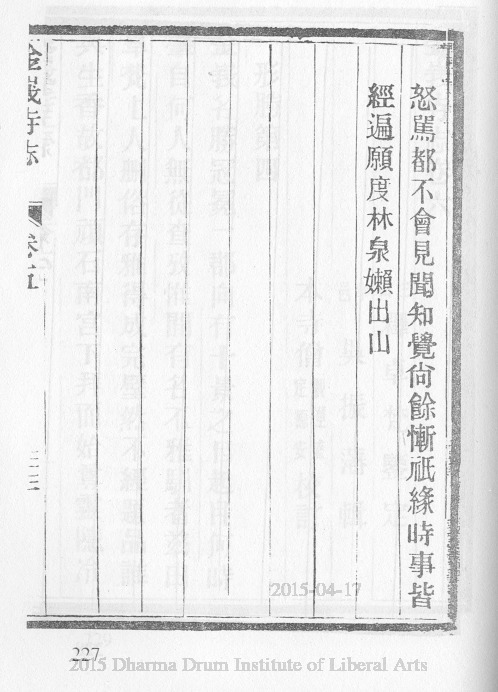 怒罵都不會見聞知覺尙餘慚祇緣時事皆
經遍願度林泉嬾出山
金義寺志
卷五
三三
2015-04-17
227
2015 Dharma Drum Institute of Liberal Arts